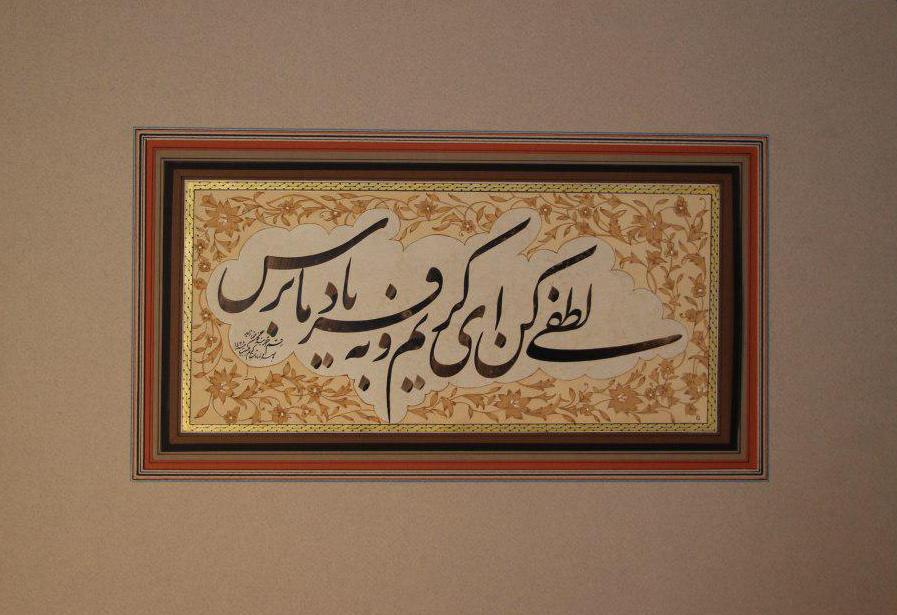 لطفی کن ای کریم و به فریاد ما برس